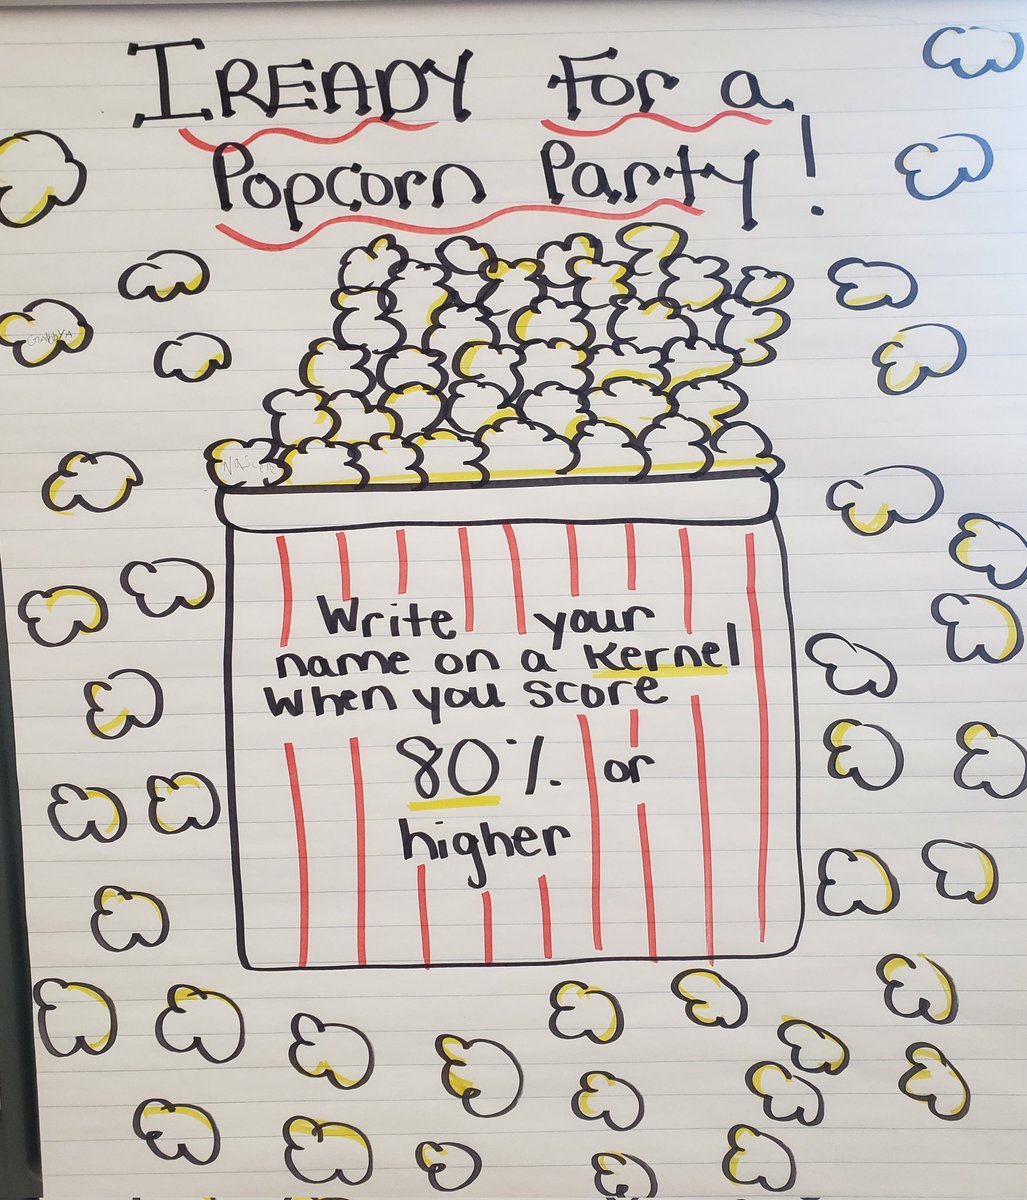 IREADY For a
Popcorn Party!
GabbyA
Write your
name on a Kernel
When you score
80% or
higher